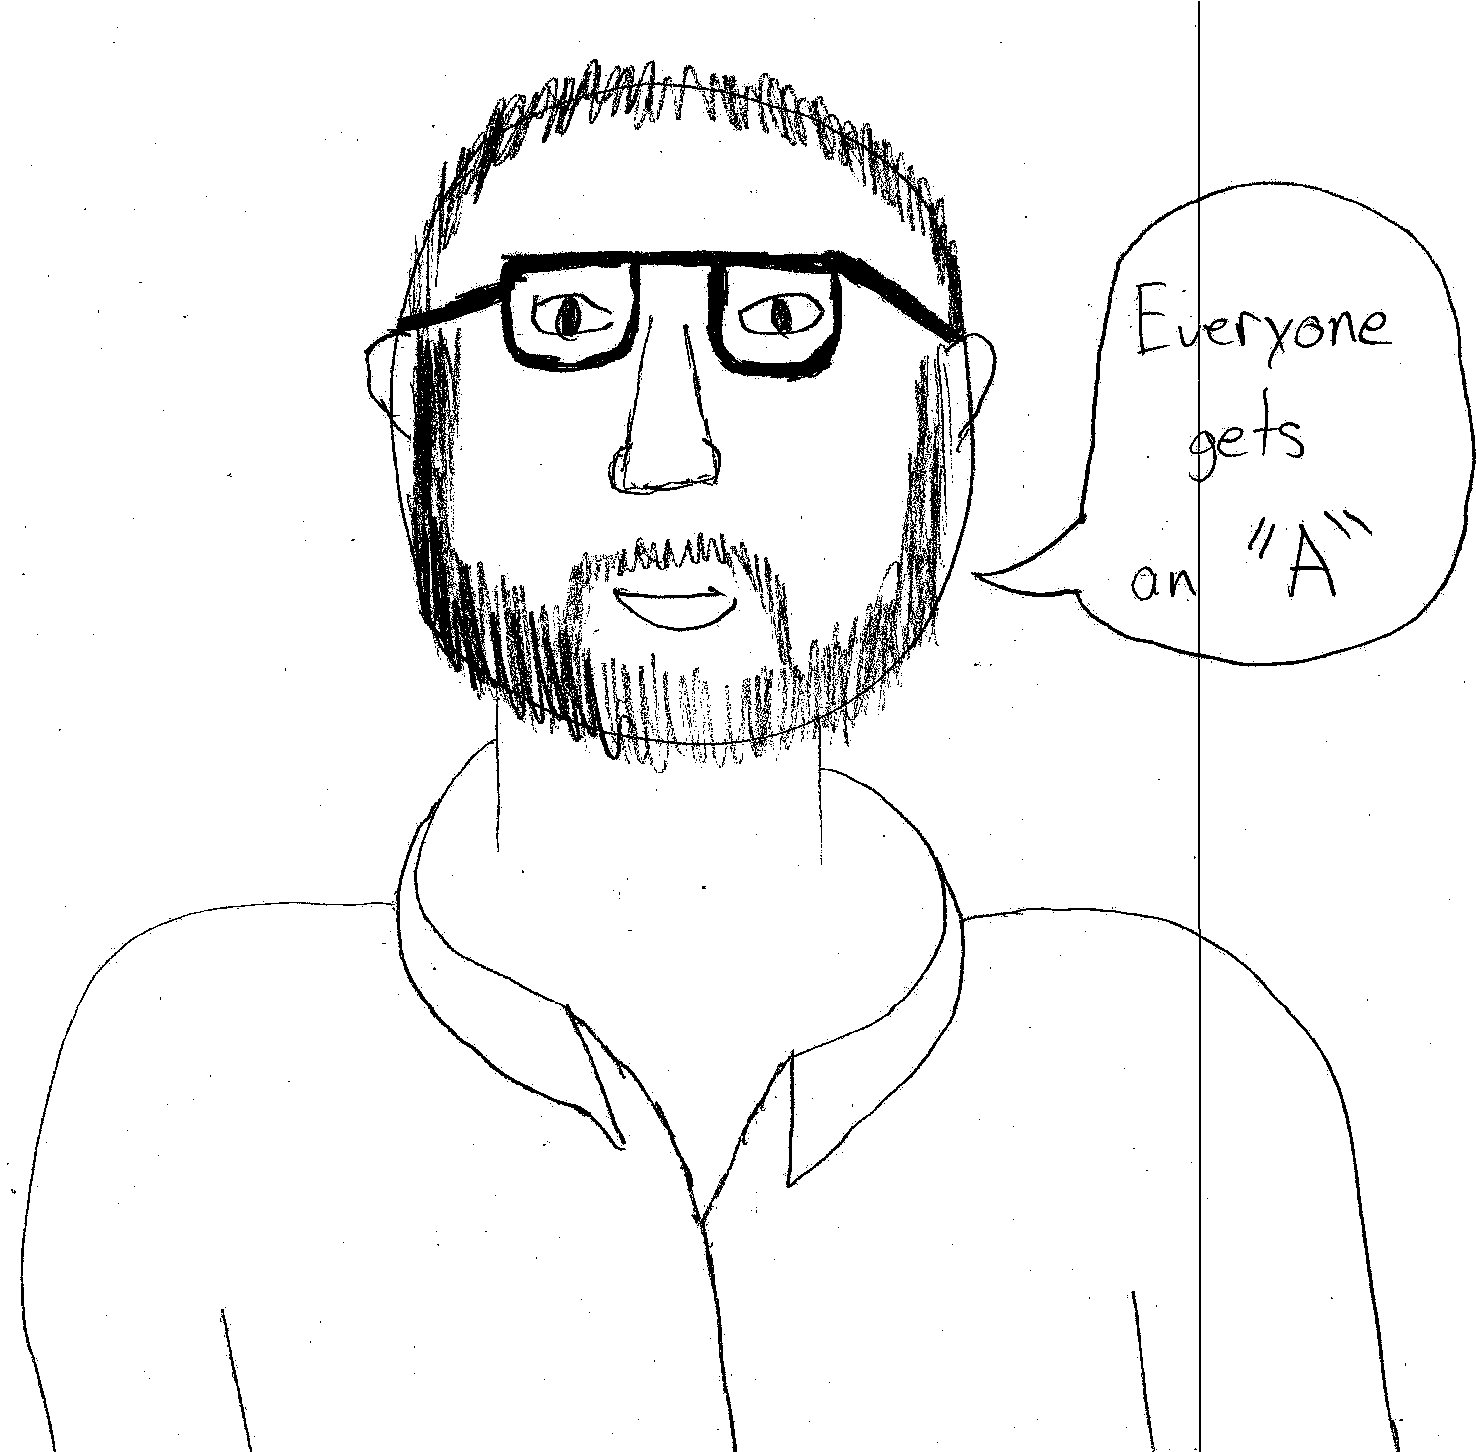 Everyone
gets
an "A"